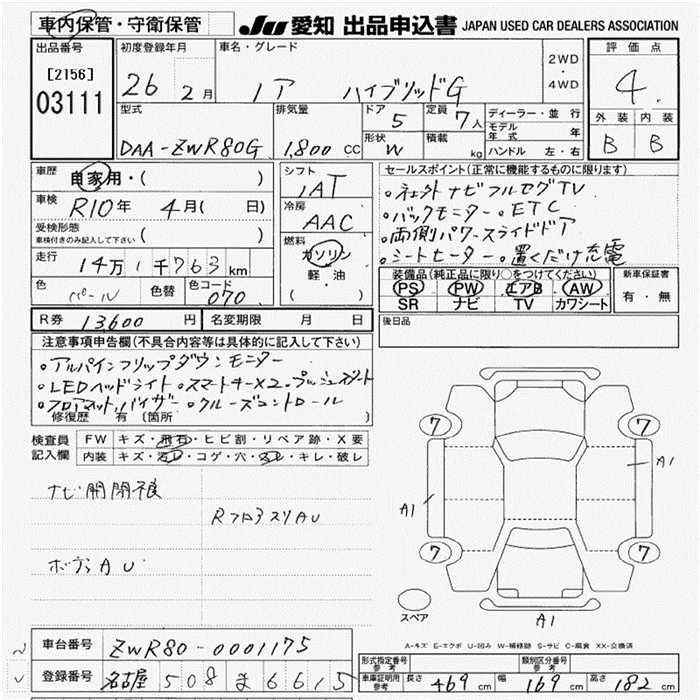 車内保管・守衛保管 JU 愛知 出品申込書 JAPAN USED CAR DEALERS ASSOCIATION
出品番号 初度登録年月 車名・グレード 評価点
[2156] 26年 2月 ノア ハイブリッドG 2WD・4WD 4
03111
型式 排気量 ドア 定員 ディーラー・並行 外装 内装
DAA-ZWR80G 1,800 CC 5 7人 モデル年式 年 B B
形状 W 積載 kg ハンドル 左・右
車歴 自家用・( ) シフト セールスポイント(正常に機能するものに限ります)
車検 R10年 4月( 日) 1AT
冷房 AAC
受検形態 ( )
車検付きのみ記入して下さい
燃料 ガソリン 軽・油 ( )
走行 14万1千763km
色 パール 色替 色コード 070
ナビフルセグTV
・バックモニター・ETC
・両側パワースライドドア
・シートヒーター・置くだけ充電
装備品(純正品に限り○をつけてください) 新車保証書
PS PW エアB AW 有・無
SR ナビ TV カワシート
R券 13600円 名変期限 月 日 後日品
注意事項申告欄(不具合内容等は具体的に記入して下さい)
・アルパインフリップダウンモニター
・LEDヘッドライト・スマートキー×2・プッシュスタート
・フロアマット,バイザー・クルーズコントロール
修復歴 有 (箇所 )
検査員記入欄 FW キズ・飛石・ヒビ割・リペア跡・X要
内装 キズ・汚レ・コゲ・穴・スレ・キレ・破レ
ナビ開閉不良
RフロアスリAU
ボタンAU
7 7
A1 A1
7 7
スペア A1
A-キズ E-エクボ U-凹み W-補修跡 S-サビ C-腐食 XX-交換済
車台番号 ZWR80-0001175
登録番号 名古屋 508 ま 6615
形式指定番号 参考 類別区分番号 参考
車庫証明用参考 長さ 469cm 幅 169cm 高さ 182cm